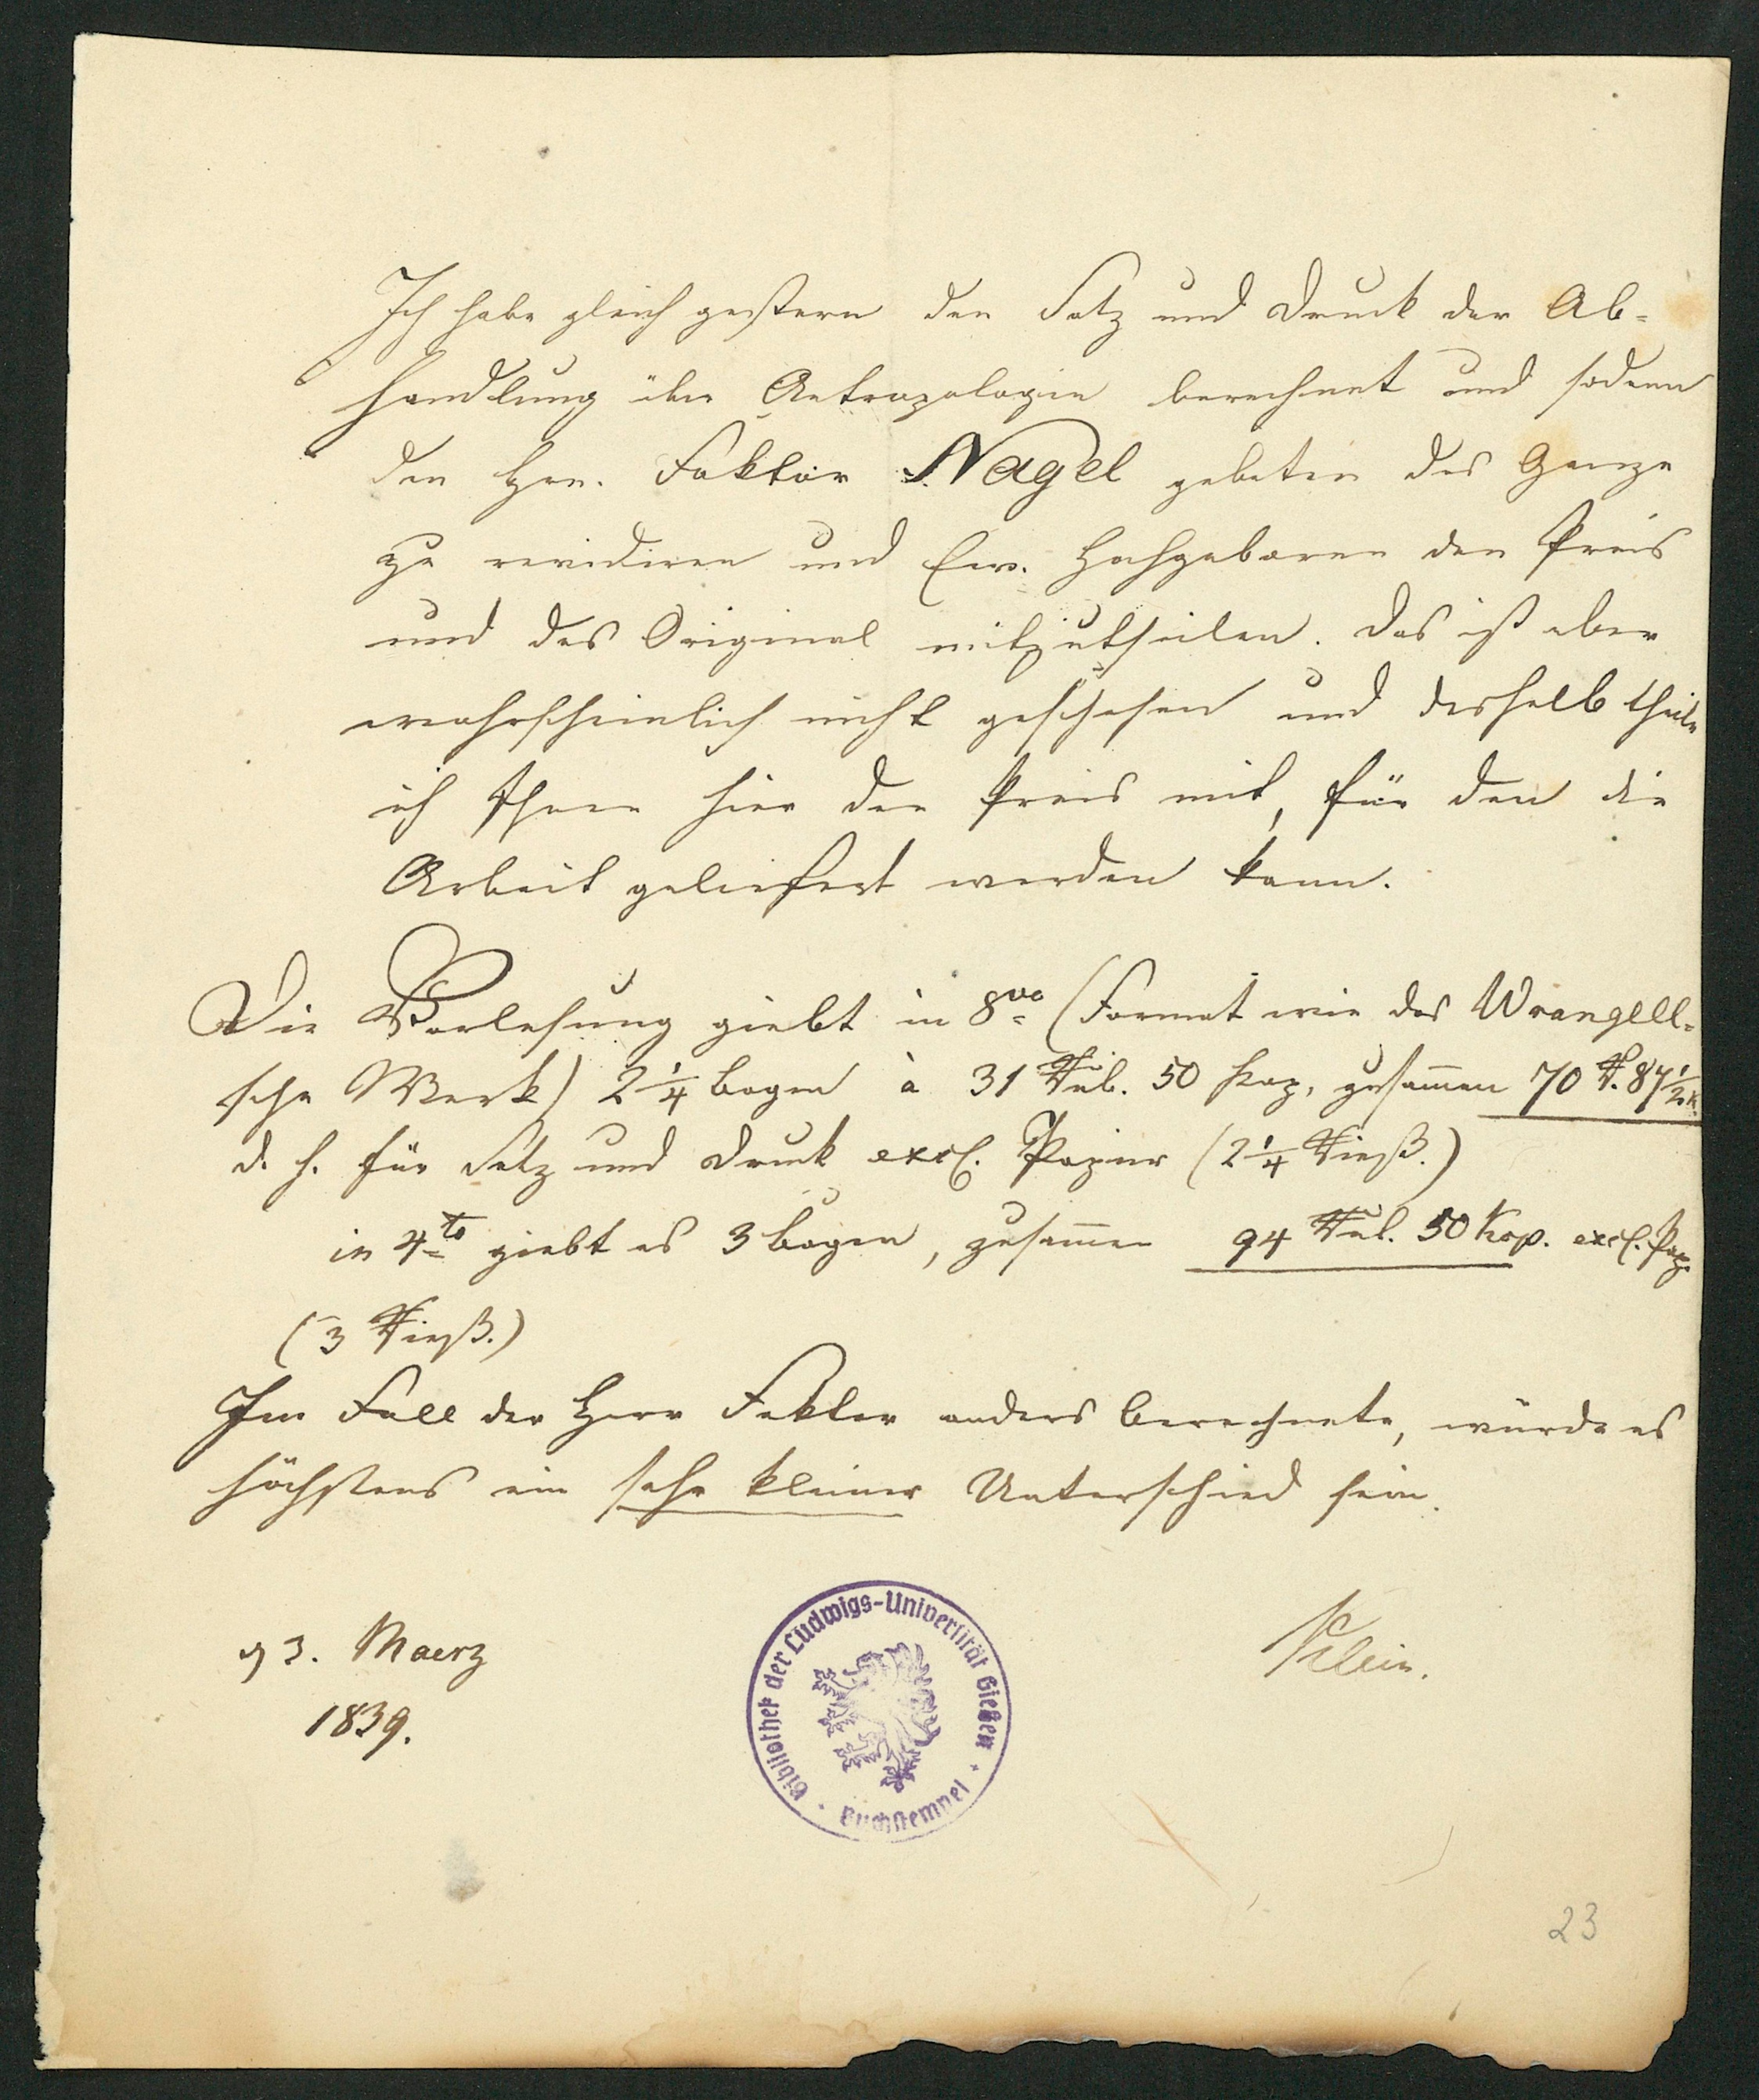 Ich habe gleich gestern den Satz und Druck der Ab-
handlung über Antropologie berechnet und sodann
den Hrn. Faktor Nagel gebeten das Ganze
zu revidiren und Ew. Hochgeboren den Preis
und das Original mitzutheilen. Das ist aber
wahrscheinlich nicht geschehen und deshalb theile
ich Ihnen hier den Preis mit, für den die
Arbeit geliefert werden kann.
Die Vorlesung giebt in 8vo (Format wie das Wrangell-
sche Werk) 2 1/4 Bogen à 31 Rub. 50 Kop, zusammen 70 R. 87 1/2 K.
d. h. für Satz und Druck excl. Papier (2 1/4 Rieß.)
in 4to giebt es 3 Bogen, zusammen 94 Rub. 50 Kop. excl. Pap.
(3 Rieß.)
Im Fall der Herr Faktor anders berechnete, würde es
höchstens ein sehr kleiner Unterschied sein.
3. Maerz
1839.
Klein.
Bibliothek der Ludwigs-Universität Gießen
Buchstempel
23